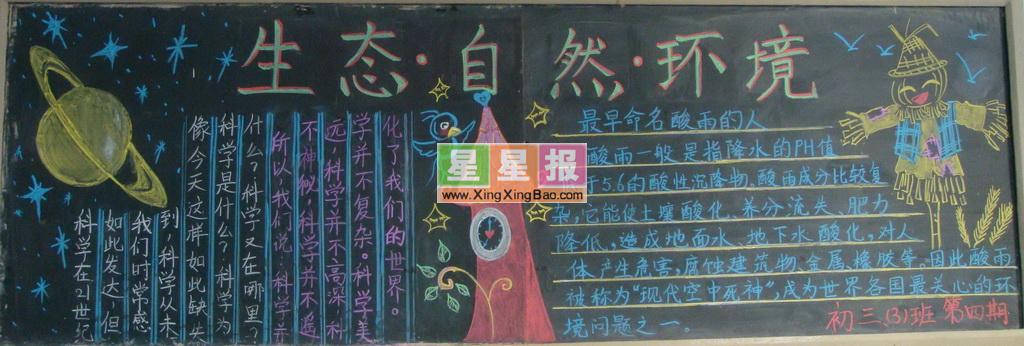 生态·自然·环境
科学在21世纪
如此发达,但
我们时常感
到,科学从未
像今天这样如此缺失
科学是什么?科学为
什么?科学又在哪里?
所以我们说:科学并
不神秘,科学并不遥
远,科学并不高深,科
学并不复杂。科学美
化了我们的世界。
星星报
www.XingXingBao.com
最早命名酸雨的人
酸雨一般是指降水的PH值
于5.6的酸性沉降物、酸雨成分比较复
杂,它能使土壤酸化、养分流失、肥力
降低,造成地面水、地下水酸化,对人
体产生危害,腐蚀建筑物、金属、橡胶等。因此酸雨
被称为“现代空中死神”,成为世界各国最关心的环
境问题之一。
初三(3)班 第四期